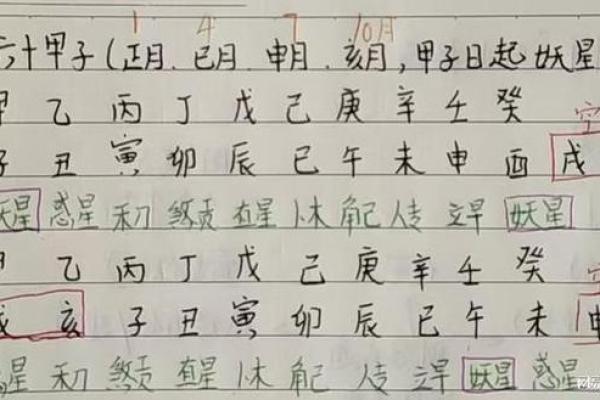 1 4 7 10月
六十甲子(正月.巳月.申月.亥月,甲子日起妖星
甲 乙 丙 丁 戊 己 庚 辛 壬 癸 空
子 丑 寅 卯 辰 巳 午 未 申 酉 戌
妖星 惑星 禾刀 煞贡 直星 卜木 角己 人专 立早 妖星
甲 乙 丙 丁 戊 己 庚 辛 壬 癸 空
戌 亥 子 丑 寅 卯 辰 巳 午 未 申
惑星 禾刀 煞贡 直星 卜木 角己 人专 立早 妖星 惑星